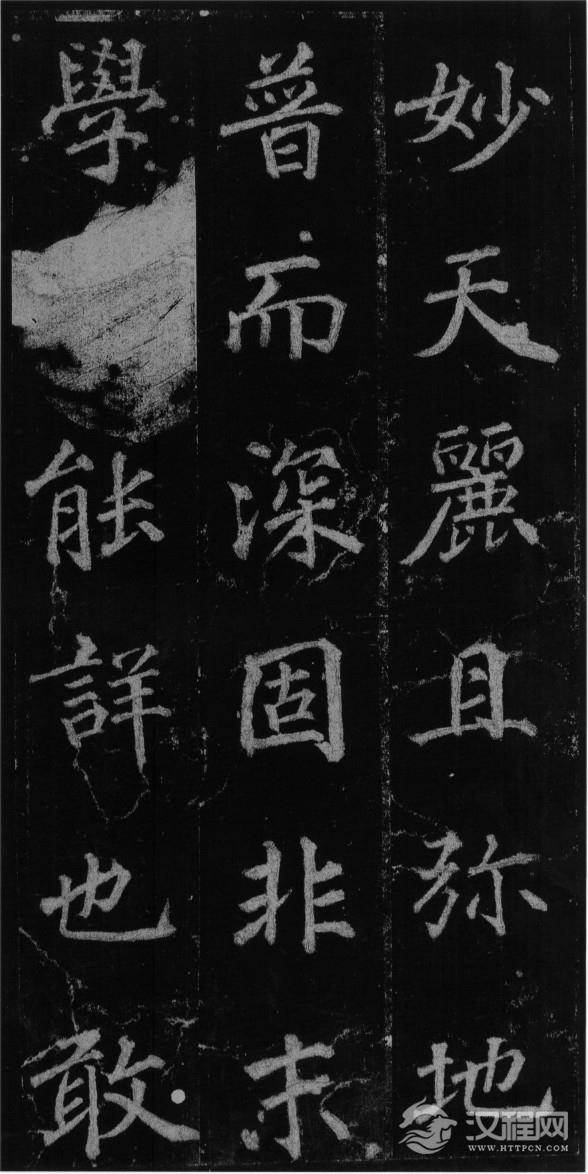 妙天麗且弥地
普而深固非末
學能詳也敢
汉程网
WWW.HTTPCN.COM